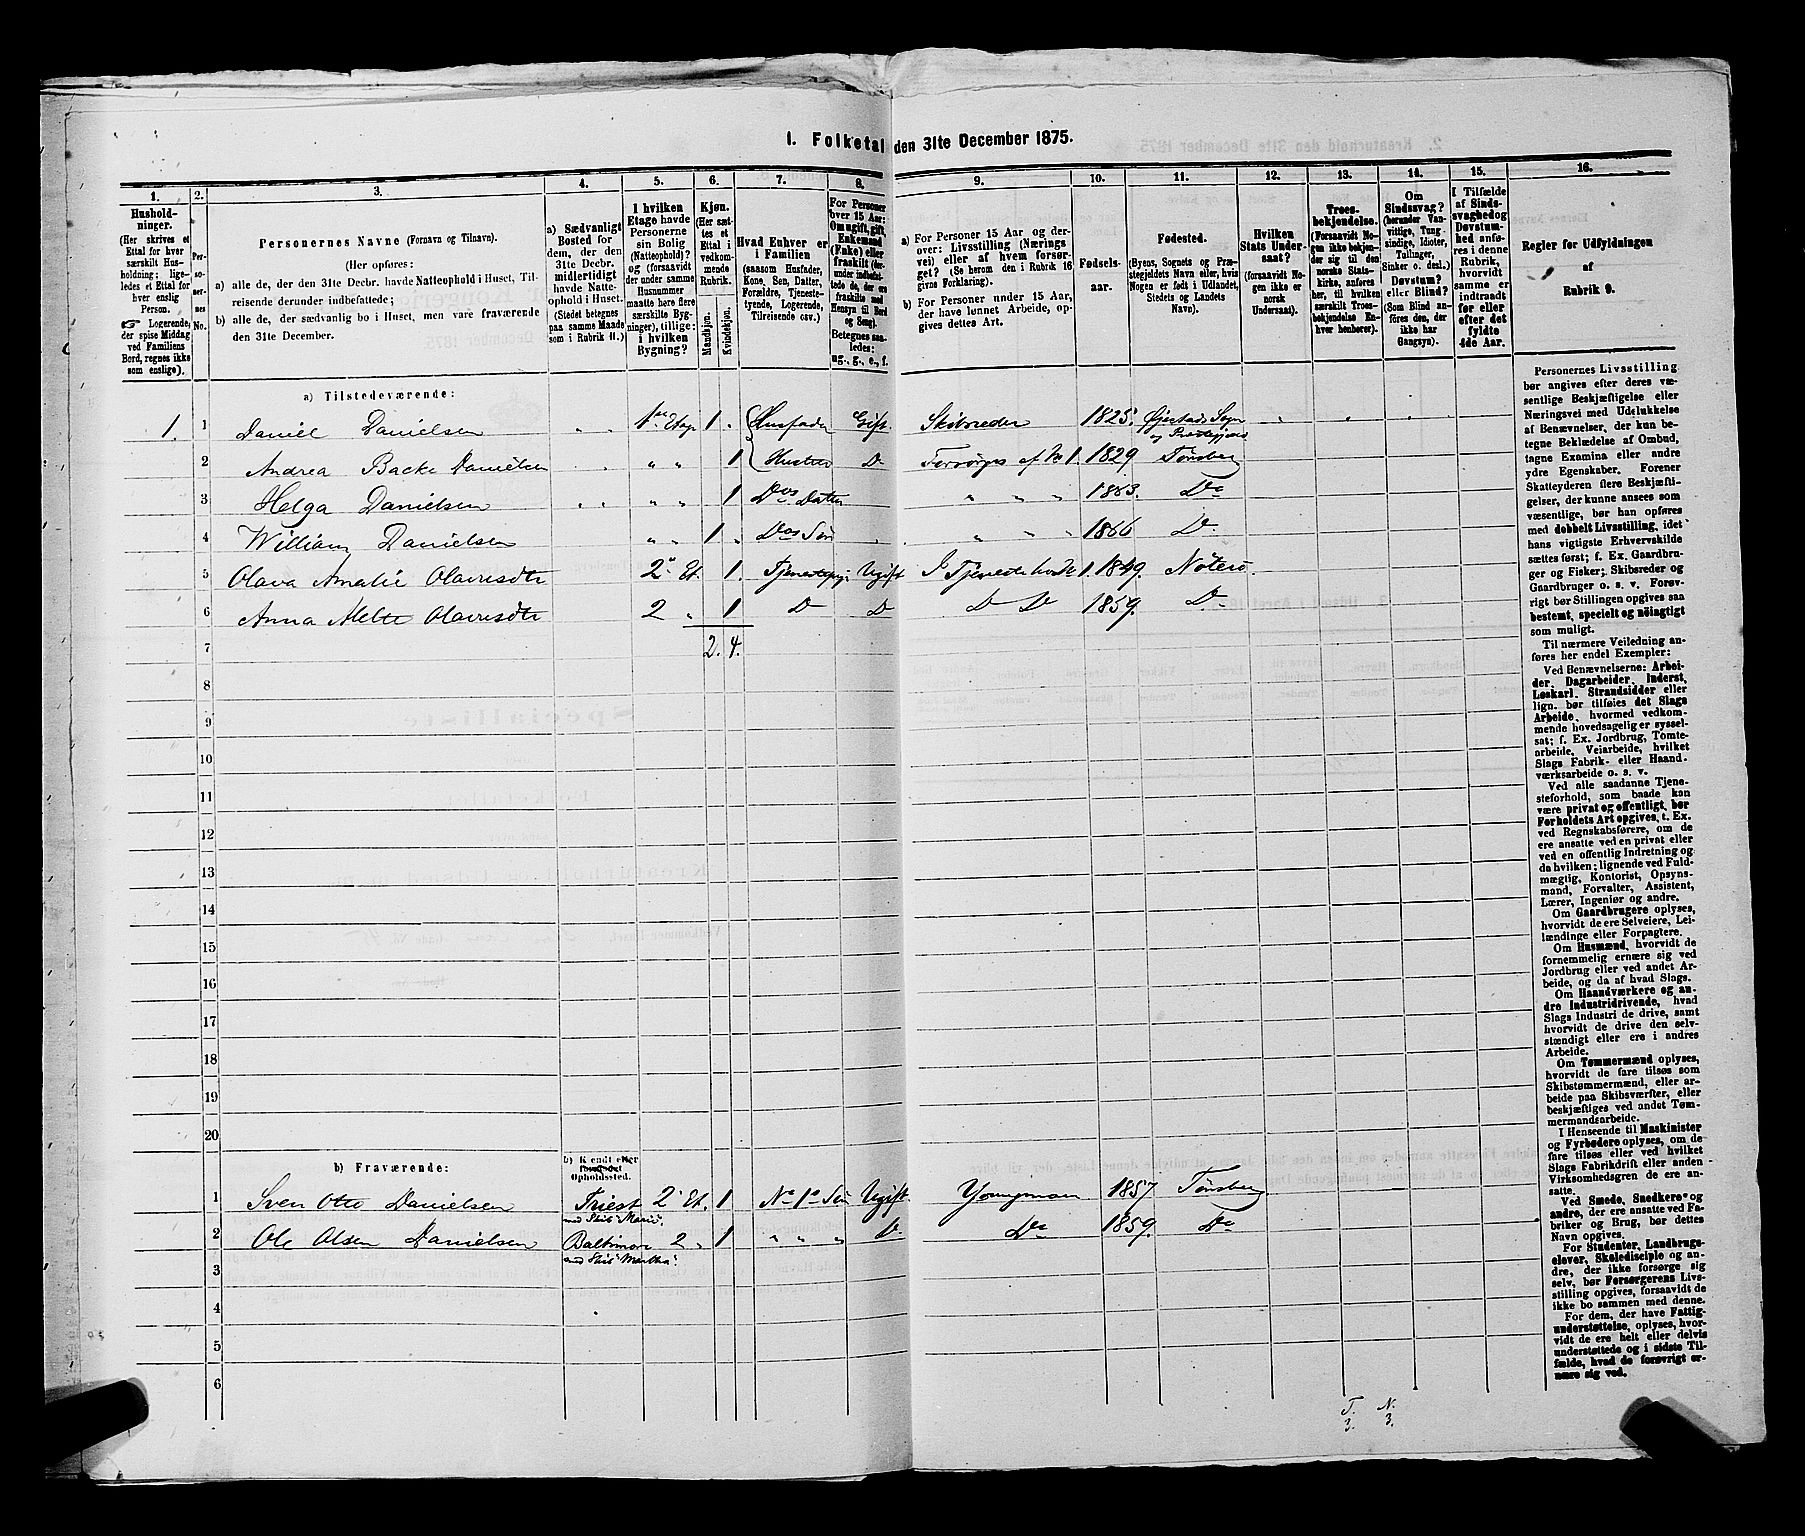 I. Folketal den 31te December 1875.
1. 2. 3. 4. 5. 6. 7. 8. 9. 10. 11. 12. 13. 14. 15. 16.
Hushold-
ninger.
(Her skrives et
Ettal for hver
særskilt Hus-
holdning; lige-
ledes et Ettal for
hver enslig
Person.
☞ Logerende,
der spise Middag
ved Familiens
Bord, regnes ikke
som enslige).
Per-
so-
ner-
nes
No.
Personernes Navne (Fornavn og Tilnavn).
(Her opføres:
a) alle de, der den 31te Decbr. havde Natteophold i Huset, Til-
reisende derunder indbefattede;
b) alle de, der sædvanlig bo i Huset, men vare fraværende
den 31te December.
a) Sædvanligt
Bosted for
dem, der den
31te Decbr.
midlertidigt
havde Natte-
ophold i Huset.
(Stedet betegnes
paa samme Maade
som i Rubrik 11.)
I hvilken
Etage havde
Personerne
sin Bolig
(Natteophold)?
og (forsaavidt
der under samme
Husnummer
maatte høre flere
særskilte Byg-
ninger), tillige:
i hvilken
Bygning?
Kjøn.
(Her sæt-
tes et
Ettal i
vedkom-
mende
Rubrik.
Mandkjøn.
Kvindekjøn.
Hvad Enhver er
i Familien
(saasom Husfader,
Kone, Søn, Datter,
Forældre, Tjeneste-
tyende, Logerende,
Tilreisende osv.)
For Personer
over 15 Aar:
Om ugift, gift,
Enkemand
(Enke) eller
fraskilt (her-
under indbefat-
tede de, der ere
fraskilte med
Hensyn til Bord
og Seng).
Betegnes saa-
ledes:
ug., g., e., f.
a) For Personer 15 Aar og der-
over: Livsstilling (Nærings
vei) eller af hvem forsør-
get? (Se herom den i Rubrik 16
givne Forklaring).
b) For Personer under 15 Aar,
der have lønnet Arbeide, op-
gives dettes Art.
Fødsels-
aar.
Fødested.
(Byens, Sognets og Præ-
stegjeldets Navn eller, hvis
Nogen er født i Udlandet,
Stedets og Landets
Navn).
Hvilken
Stats Under-
saat?
(forsaavidt No-
gen ikke er
norsk
Undersaat).
Troes-
bekjendelse.
(Forsaavidt No-
gen ikke bekjen-
der sig til den
norske Stats-
kirke, anføres
her, til hvilken
særskilt Troes-
bekjendelse En-
hver henhører).
Om
Sindssvag?
(herunder Van-
vittige, Tung-
sindige, Idioter,
Tullinger,
Sinker o. desl.)
Døvstum?
eller Blind?
(Som Blind an-
føres den, der
ikke har
Gangsyn).
I Tilfælde
af Sinds-
svaghed og
Døvstum-
hed anfø-
res i denne
Rubrik,
hvorvidt
samme er
indtraadt
før eller
efter det
fyldte
4de Aar.
Regler for Udfyldningen
af
Rubrik 9.
a) Tilstedeværende:
1. 1 Daniel Danielsen 1ste Etage 1. Husfader Gift Skibsreder 1825. Øjestad Sogn
og Præstegjæld
2 Andrea Backe Danielsen " " 1 Hustru Do Forsørges af No 1. 1829 Tønsberg
3 Helga Danielsen " " 1 Dos Datter " " " 1863. Do
4 William Danielsen " " 1 Dos Søn " " " 1866 Do
5 Olava Amalie Olavesdtr 2. Et. 1. Tjenestepige Ugift I Tjeneste hos No 1. 1849. Nøterø.
6 Anna Mette Olavesdtr 2 " 1 D D D D 1859. Do
7 2. 4.
8
9
10
11
12
13
14
15
16
17
18
19
20
b) Fraværende:
b) Kjendt eller
formodet
Opholdssted.
1 Sven Otto Danielsen Triest 2. Et. 1 No 1s Søn Ugift Youngman 1857 Tønsberg
med Skib "Marie".
2 Ole Olsen Danielsen Baltimore 2 " 1 " " " Do Do 1859. Do
med Skib "Martha".
3
4
5
6
Personernes Livsstilling
bør angives efter deres væ-
sentlige Beskjæftigelse eller
Næringsvei med Udelukkelse
af Benævnelser, der kun be-
tegne Beklædelse af Ombud,
tagne Examina eller andre
ydre Egenskaber. Forener
Skatteyderen flere Beskjæfti-
gelser, der kunne ansees som
væsentlige, bør han opføres
med dobbelt Livsstilling, idet
hans vigtigste Erhvervskilde
sættes først; f. Ex. Gaardbru-
ger og Fisker; Skibsreder og
Gaardbruger o. s. v. Forøv-
rigt bør Stillingen opgives saa
bestemt, specielt og nöiagtigt
som muligt.
Til nærmere Veiledning an-
føres her endel Exempler:
Ved Benævnelserne: Arbei-
der, Dagarbeider, Inderst,
Løskarl, Strandsidder eller
lign. bør tilføies det Slags
Arbeide, hvormed vedkom-
mende hovedsagelig er syssel-
sat; f. Ex. Jordbrug, Tomte-
arbeide, Veiarbeide, hvilket
Slags Fabrik- eller Haand-
værksarbeide o. s. v.
Ved alle saadanne Tjene-
steforhold, som baade kan
være privat og offentligt, bør
Forholdets Art opgives, t. Ex.
ved Regnskabsførere, om de
ere ansatte ved en privat eller
ved en offentlig Indretning og
da hvilken; lignende ved Fuld-
mægtig, Kontorist, Opsyns-
mand, Forvalter, Assistent,
Lærer, Ingeniør og andre.
Om Gaardbrugere oplyses,
hvorvidt de ere Selveiere, Lei-
lændinge eller Forpagtere.
Om Husmænd, hvorvidt de
fornemmelig ernære sig ved
Jordbrug eller ved andet Ar-
beide, og da af hvad Slags.
Om Haandværkere og an-
dre Industridrivende, hvad
Slags Industri de drive, samt
hvorvidt de drive den selv-
stændigt eller ere i andres
Arbeide.
Om Tømmermænd oplyses,
hvorvidt de fare tilsøs som
Skibstømmermænd, eller ar-
beide paa Skibsværfter, eller
beskjæftiges ved andet Tøm-
mermandsarbeide.
I Henseende til Maskinister
og Fyrbødere oplyses, om de
fare tilsøs eller ved hvilket
Slags Fabrikdrift eller anden
Virksomhedsgren de ere an-
satte.
Ved Smede, Snedkere og
andre, der ere ansatte ved Fa-
briker og Brug, bør dettes
Navn opgives.
For Studenter, Landbrugs-
elever, Skoledisciple og an-
dre, der ikke forsørge sig
selv, bør Forsørgerens Livs-
stilling opgives, forsaavidt de
ikke bo sammen med denne.
For dem, der have Fattig-
understøttelse, oplyses, hvor-
vidt de ere helt eller delvis
understøttede og i sidste Til-
fælde, hvad de forøvrigt er-
nære sig ved.
T. N.
3. 3.